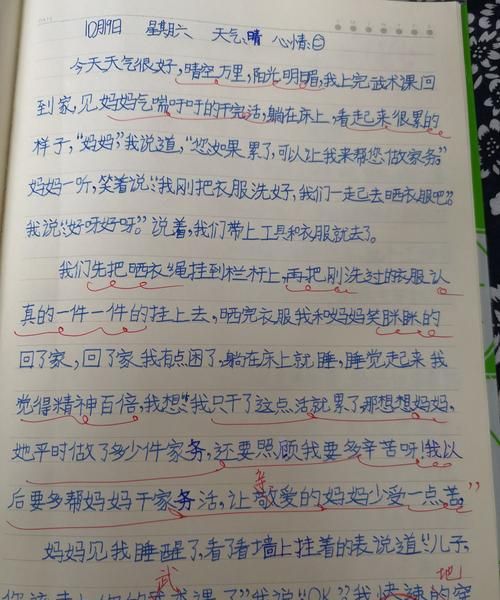 10月19日 星期六 天气:晴 心情:
今天天气很好,晴空万里,阳光明媚,我上完武术课回
到家,见妈妈气喘吁吁的干完活,躺在床上,看起来很累的
样子,“妈妈”,我说道,“您如果累了,可以让我来帮您做家务。”
妈妈一听,笑着说:“我刚把衣服洗好,我们一起去晒衣服吧。”
我说:“好呀好呀。”说着,我们带上工具和衣服就去了。
我们先把晒衣绳挂到栏杆上,再把刚洗过的衣服认
真的一件一件的挂上去,晒完衣服我和妈妈笑眯眯的
回了家,回了家我有点困了,躺在床上就睡,睡觉起来我
觉得精神百倍,我想:“我只干了这点活就累了,那想想妈妈,
她平时做了多少件家务,还要照顾我要多辛苦呀!我以
后要多帮妈妈干家务活,让敬爱的妈妈少受一点苦。”
妈妈见我睡醒了,看了看墙上挂着的表说道:“儿子,
武
地
你该去上你的武术课了”我说“OK”我快速的穿